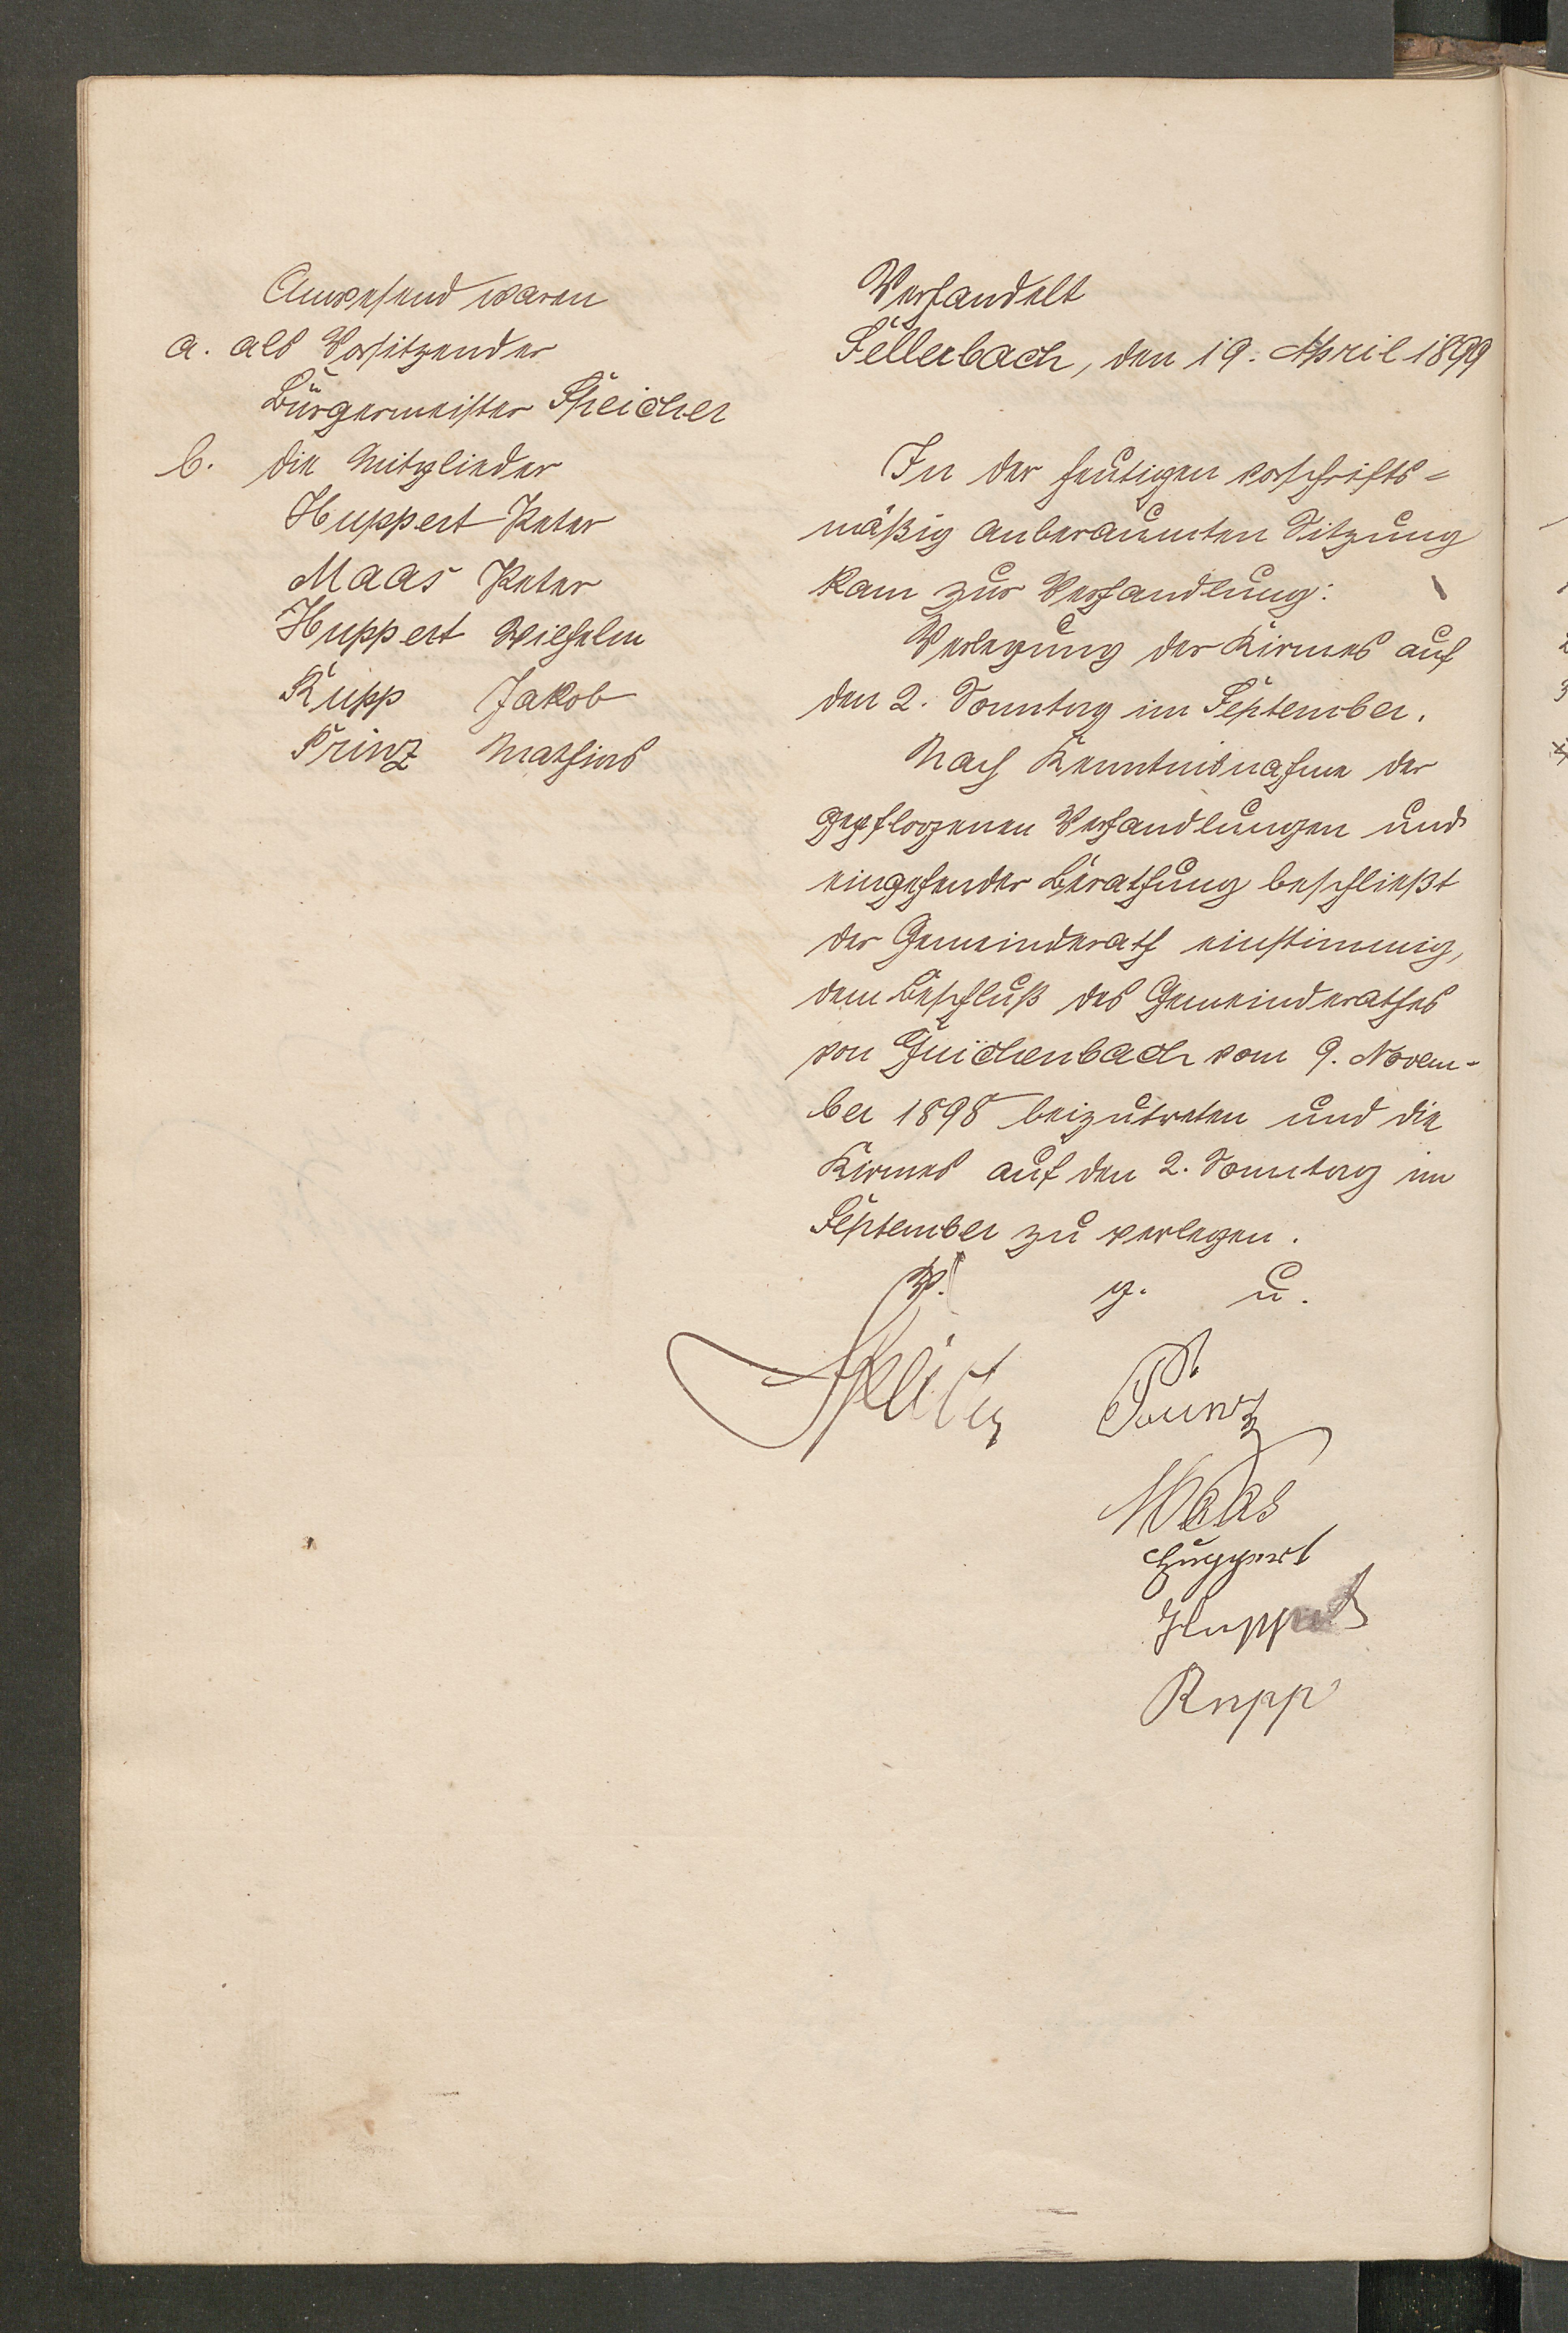 Anwesend waren
a. als Vorsitzender
Bürgermeister Speicher
b. die Mitglieder
Huppert Peter
Maas Peter
Huppert Wilhelm
Rupp Jakob
Prinz Mathias
Verhandelt
Sellerbach, den 19. April 1899
In der heutigen vorschrifts=
mäßig anberaumten Sitzung
kam zur Verhandlung:
Verlegung der Kirmes auf
den 2. Sonntag im September.
Nach Kenntnisnahme der
gepflogenen Verhandlungen und
eingehender Berathung beschließt
der Gemeinderath einstimmig,
dem Beschluß des Gemeinderathes
von Güichenbach vom 9. Novem-
ber 1898 beizutreten und die
Kirmes auf den 2. Sonntag im
September zu verlegen.
V. g. u.
Speicher
Prinz
Maas
Huppert
Huppert
Rupp